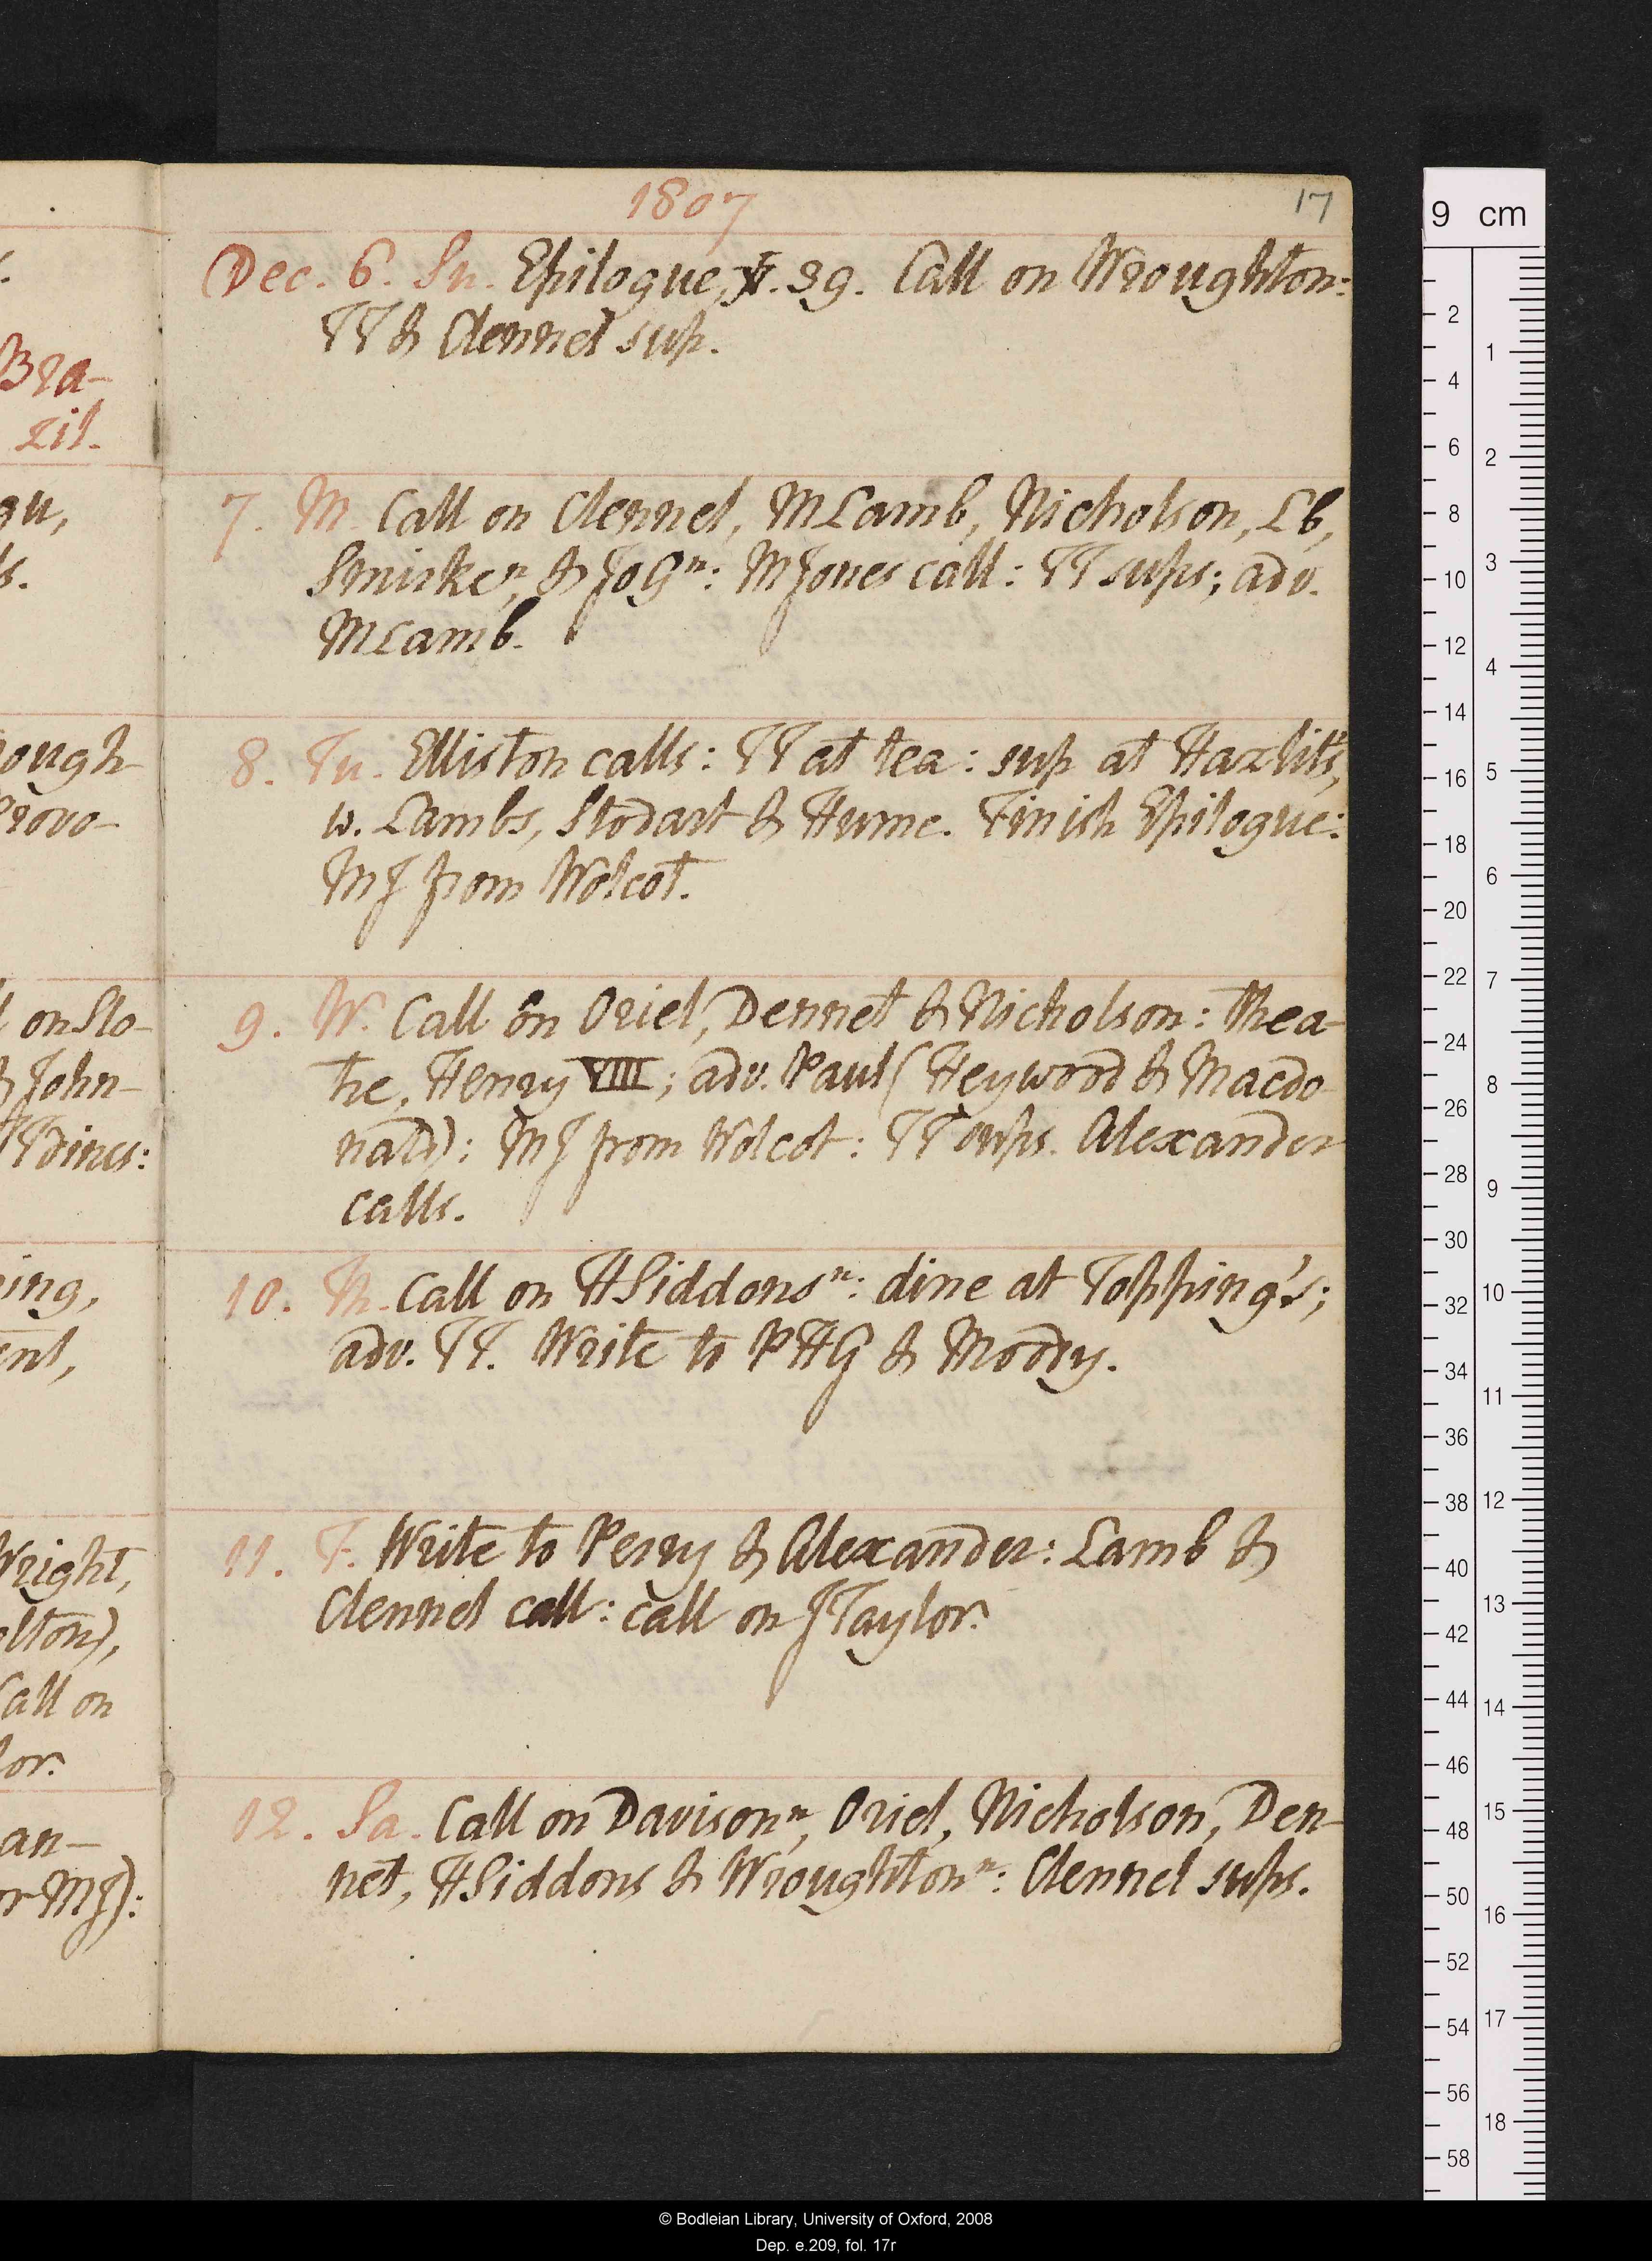 1807
17
Dec. 6. Su. Epilogue, v. 39. Call on Wroughton:
TT & Clennel sup.
7. M. Call on Clennel, MLamb, Nicholson, Lb,
Smirke, n, & JoGn: MJones call: TT sups; adv.
MLamb.
8. Tu. Elliston calls: TT at tea: sup at Hazlit's,
w. Lambs, Stodart & Hume. Finish Epilogue:
MJ from Wolcot.
9. W. Call on Oriel, Dennet & Nicholson: thea-
tre, Henry VIII; adv. Paul (Heywood & Macdo-
nald): MJ from Wolcot: TT sups. Alexander
calls.
10. Th. Call on HSiddons n: dine at Topping's;
adv. TT. Write to PHG & Moody.
11. F. Write to Perry & Alexander: Lamb &
Clennel call: call on JTaylor.
12. Sa. Call on Davison n, Oriel, Nicholson, Den-
net, HSiddons & Wroughton n: Clennel sups.
Bra-
zil.
gu,
ls.
ough
Provo-
l on Sto-
& John-
TT dines:
ing,
ent,
Wright,
olton),
Call on
lor.
an-
r MJ):
9 cm
2
4
6
8
10
12
14
16
18
20
22
24
26
28
30
32
34
36
38
40
42
44
46
48
50
52
54
56
58
1
2
3
4
5
6
7
8
9
10
11
12
13
14
15
16
17
18
© Bodleian Library, University of Oxford, 2008
Dep. e.209, fol. 17r